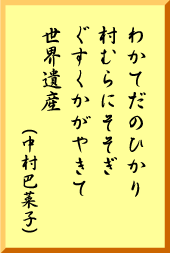 わかてだのひかり
村むらにそそぎ
ぐすくかがやきて
世界遺産
(中村巴菜子)